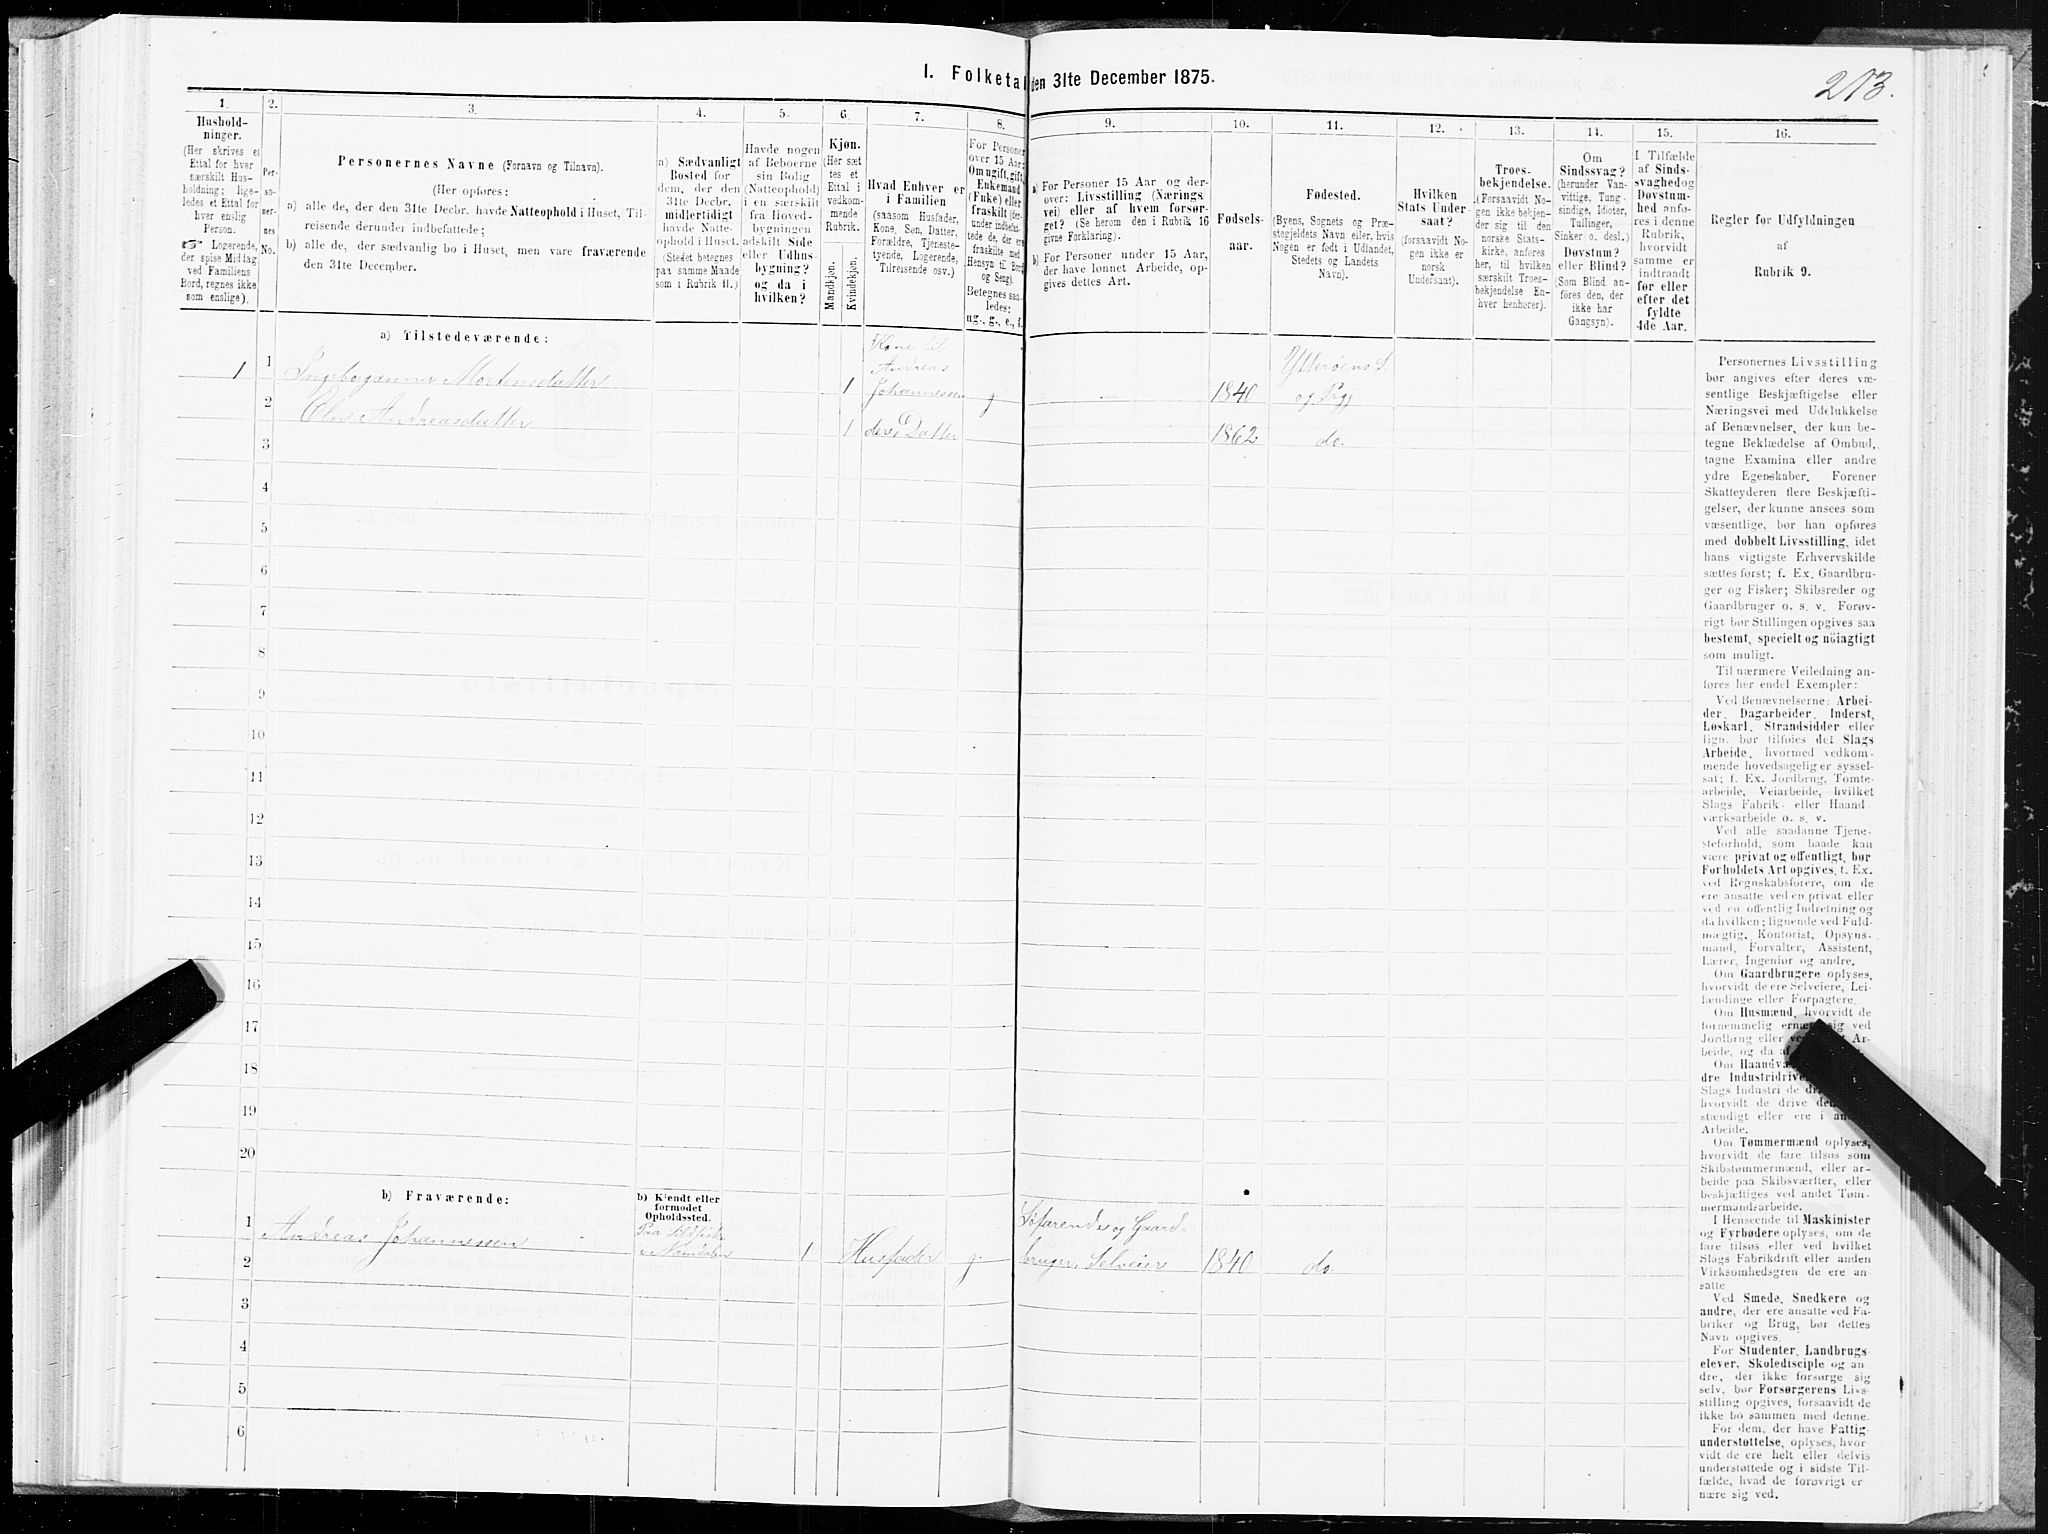 I. Folketal den 31te December 1875.
213.
1.
Hushold-
ninger.
(Her skrives et
Ettal for hver
særskilt Hus-
holdning; lige-
ledes et Ettal for
hver enslig
Person.
☞ Logerende,
der spise Middag
ved Familiens
Bord, regnes ikke
som enslige).
2.
Per-
so-
ner-
nes
No.
3.
Personernes Navne (Fornavn og Tilnavn).
(Her opføres:
a) alle de, der den 31te Decbr. havde Natteophold i Huset, Til-
reisende derunder indbefattede;
b) alle de, der sædvanlig bo i Huset, men vare fraværende
den 31te December.
4.
a) Sædvanligt
Bosted for
dem, der den
31te Decbr.
midlertidigt
havde Natte-
ophold i Huset.
(Stedet betegnes
paa samme Maade
som i Rubrik 11.)
5.
Havde nogen
af Beboerne
sin Bolig
(Natteophold)
i en særskilt
fra Hoved-
bygningen
adskilt Side
eller Udhus-
bygning?
og da i
hvilken?
6.
Kjøn.
(Her sæt
tes et
Ettal i
vedkom-
mende
Rubrik.
Mandkjøn.
Kvindekjøn.
7.
Hvad Enhver er
i Familien
(saasom Husfader,
Kone, Søn, Datter,
Forældre, Tjeneste-
tyende, Logerende,
Tilreisende osv.)
8.
For Personer
over 15 Aar:
Om ugift, gift,
Enkemand
(Enke) eller
fraskilt (der-
under indbefat-
tede de, der ere
fraskilte med
Hensyn til Bord
og Seng).
Betegnes saa-
ledes:
ug., g., e., f.
9.
a) For Personer 15 Aar og der-
over: Livsstilling (Nærings-
vei) eller af hvem forsør-
get? (Se herom den i Rubrik 16
givne Forklaring).
b) For Personer under 15 Aar,
der have lønnet Arbeide, op-
gives dettes Art.
10.
Fødsels-
aar.
11.
Fødested.
(Byens, Sognets og Præ-
stegjeldets Navn eller, hvis
Nogen er født i Udlandet,
Stedets og Landets
Navn).
12.
Hvilken
Stats Under-
saat?
(forsaavidt No-
gen ikke er
norsk
Undersaat).
13.
Troes-
bekjendelse.
(Forsaavidt No-
gen ikke bekjen-
der sig til den
norske Stats-
kirke, anføres
her, til hvilken
særskilt Troes-
bekjendelse En-
hver henhører).
14.
Om
Sindssvag?
(herunder Van-
vittige, Tung-
sindige, Idioter,
Tullinger,
Sinker o. desl.)
Døvstum?
eller Blind?
(Som Blind an-
føres den, der
ikke har
Gangsyn).
15.
I Tilfælde
af Sinds-
svaghed og
Døvstum-
hed anfø-
res i denne
Rubrik,
hvorvidt
samme er
indtraadt
før eller
efter det
fyldte
4de Aar.
16.
Regler for Udfyldningen
af
Rubrik 9.
a) Tilstedeværende:
1 1 Ingeborganna Mortensdatter 1 Kone til Andreas Johannessen g 1840 Ytterøens S. og Prgj
2 Elen Andreasdatter 1 deres Datter 1862 do.
3
4
5
6
7
8
9
10
11
12
13
14
15
16
17
18
19
20
b) Fraværende:
b) Kjendt eller
formodet
Opholdssted.
1 Andreas Johannessen Paa Sildfiske i Namdalen 1 Husfader g. Søfarende og Gaard-
bruger, Selveier 1840 do.
2
3
4
5
6
Personernes Livsstilling
bør angives efter deres væ-
sentlige Beskjæftigelse eller
Næringsvei med Udelukkelse
af Benævnelser, der kun be-
tegne Beklædelse af Ombud,
tagne Examina eller andre
ydre Egenskaber. Forener
Skatteyderen flere Beskjæfti-
gelser, der kunne ansees som
væsentlige, bør han opføres
med dobbelt Livsstilling, idet
hans vigtigste Erhvervskilde
sættes først; f. Ex. Gaardbru-
ger og Fisker; Skibsreder og
Gaardbruger o. s. v. Forøv-
rigt bør Stillingen opgives saa
bestemt, specielt og nöiagtigt
som muligt.
Til nærmere Veiledning an-
føres her endel Exempler:
Ved Benævnelserne: Arbei-
der, Dagarbeider, Inderst,
Løskarl, Strandsidder eller
lign. bør tilføies det Slags
Arbeide, hvormed vedkom-
mende hovedsagelig er syssel-
sat; f. Ex. Jordbrug, Tomte-
arbeide, Veiarbeide, hvilket
Slags Fabrik- eller Haand-
værksarbeide o. s. v.
Ved alle saadanne Tjene-
steforhold, som baade kan
være privat og offentligt, bør
Forholdets Art opgives, f. Ex.
ved Regnskabsførere, om de
ere ansatte ved en privat eller
ved en offentlig Indretning og
da hvilken; lignende ved Fuld-
mægtig, Kontorist, Opsyns-
mand, Forvalter, Assistent,
Lærer, Ingeniør og andre.
Om Gaardbrugere oplyses,
hvorvidt de ere Selveiere, Lei-
lændinge eller Forpagtere.
Om Husmænd, hvorvidt de
fornemmelig ernære sig ved
Jordbrug eller ved
beide, og da af
Om
dre Industridrivende
Slags Industri de
hvorvidt de drive den
stændigt eller ere i
Arbeide.
Om Tømmermænd oplyses,
hvorvidt de fare tilsøs som
Skibstømmermænd, eller ar-
beide paa Skibsværfter, eller
beskjæftiges ved andet Tøm-
mermandsarbeide.
I Henseende til Maskinister
og Fyrbødere oplyses, om de
fare tilsøs eller ved hvilket
Slags Fabrikdrift eller anden
Virksomhedsgren de ere an-
satte
Ved Smede, Snedkere og
andre, der ere ansatte ved Fa-
briker og Brug, bør dettes
Navn opgives.
For Studenter, Landbrugs-
elever, Skoledisciple og an-
dre, der ikke forsørge sig
selv, bør Forsørgerens Livs-
stilling opgives, forsaavidt de
ikke bo sammen med denne.
For dem, der have Fattig-
understøttelse, oplyses, hvor-
vidt de ere helt eller delvis
understøttede og i sidste Til-
fælde, hvad de forøvrigt er-
nære sig ved.